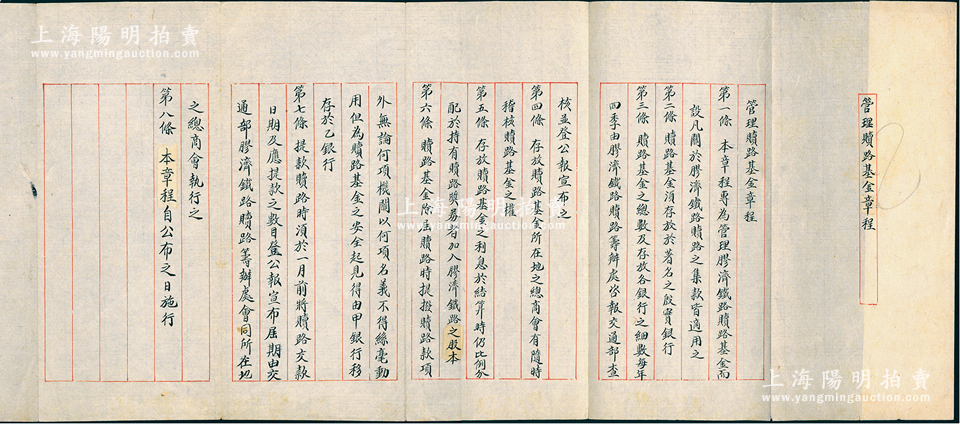 管理贖路基金章程
管理贖路基金章程
第一條 本章程專為管理膠濟鐵路贖路基金而
設凡關於膠濟鐵路贖路之集款皆適用之
第二條 贖路基金須存放於著名之殷實銀行
第三條 贖路基金之總數及存放各銀行之細數每年
四季由膠濟鐵路贖路籌辦處咨報交通部查
核並登公報宣布之
第四條 存放贖路基金所在地之總商會有隨時
稽核贖路基金之權
第五條 存放贖路基金之利息於結算時仍比例分
配於持有贖路獎券者加入膠濟鐵路之股本
第六條 贖路基金除屆贖路時提撥贖路款項
外無論何項機關以何項名義不得絲毫動
用但為贖路基金之安全起見得由甲銀行移
存於乙銀行
第七條 提款贖路時須於一月前將贖路交款
日期及應提款之數目登公報宣布屆期由交
通部膠濟鐵路贖路籌辦處會同所在地
之總商會執行之
第八條 本章程自公布之日施行
上海陽明拍賣
www.yangmingauction.com
上海陽明拍賣
www.yangmingauction.com
上海陽明拍賣
www.yangmingauction.com
上海陽明拍賣
www.yangmingauction.com